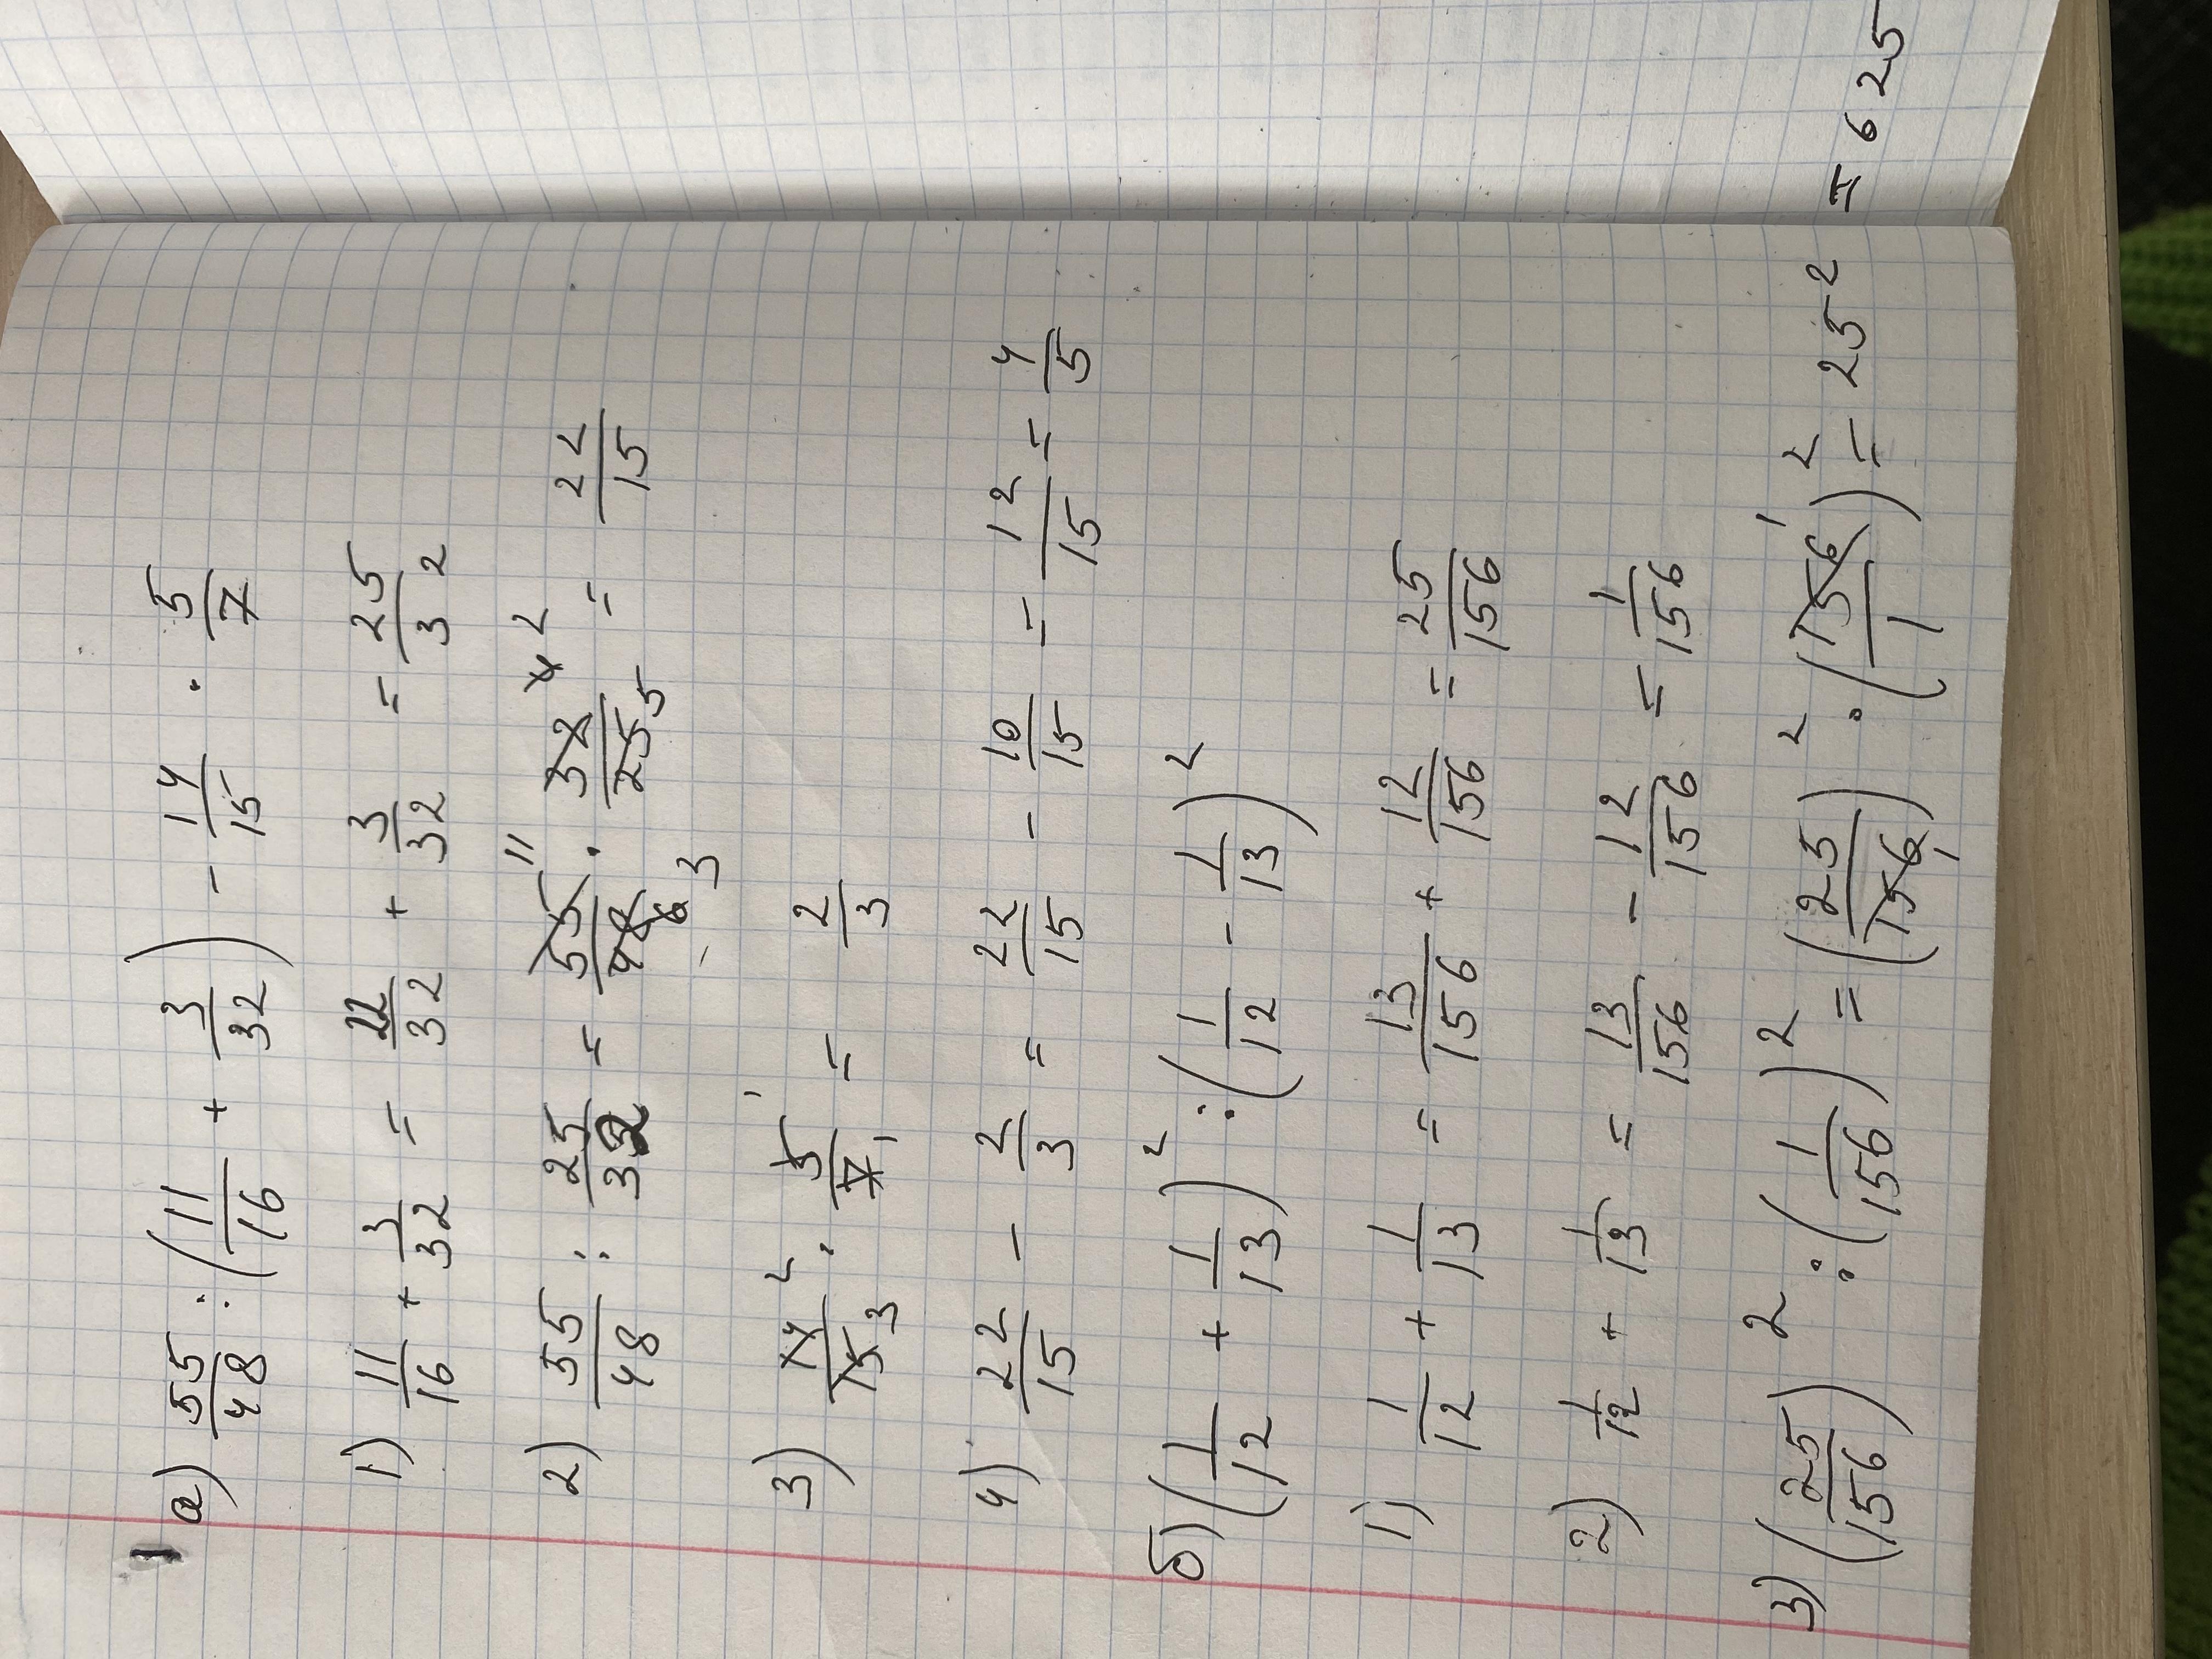 1
а) 55/48 : (11/16 + 3/32) - 14/15 · 5/7
1) 11/16 + 3/32 = 22/32 + 3/32 = 25/32
2) 55/48 : 25/32 = 55 11/48 6 3 · 32 4 2/25 5 = 22/15
3) 14 2/15 3 · 5 1/7 1 = 2/3
4) 22/15 - 2/3 = 22/15 - 10/15 = 12/15 = 4/5
б) (1/12 + 1/13)² : (1/12 - 1/13)²
1) 1/12 + 1/13 = 13/156 + 12/156 = 25/156
2) 1/12 + 1/13 = 13/156 - 12/156 = 1/156
3) (25/156)² : (1/156)² = (25/156 1)² · (156 1/1)² = 25² = 625